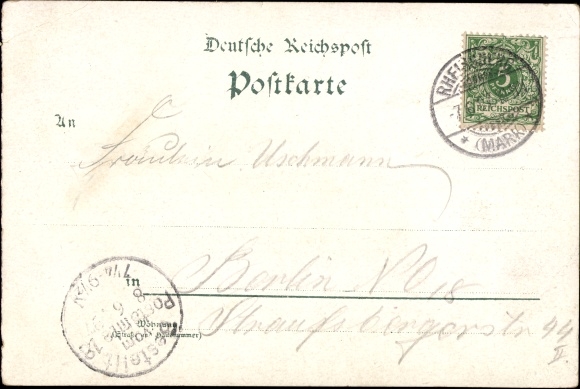 Deutsche Reichspost
Postkarte
5
REICHSPOST
RHEINSBERG
(MARK)
An
Fräulein Uschmann
in
Berlin NO 18
Wohnung
(Straße und Hausnummer)
Straußbergerstr 44
II
Bestellt
Postamt